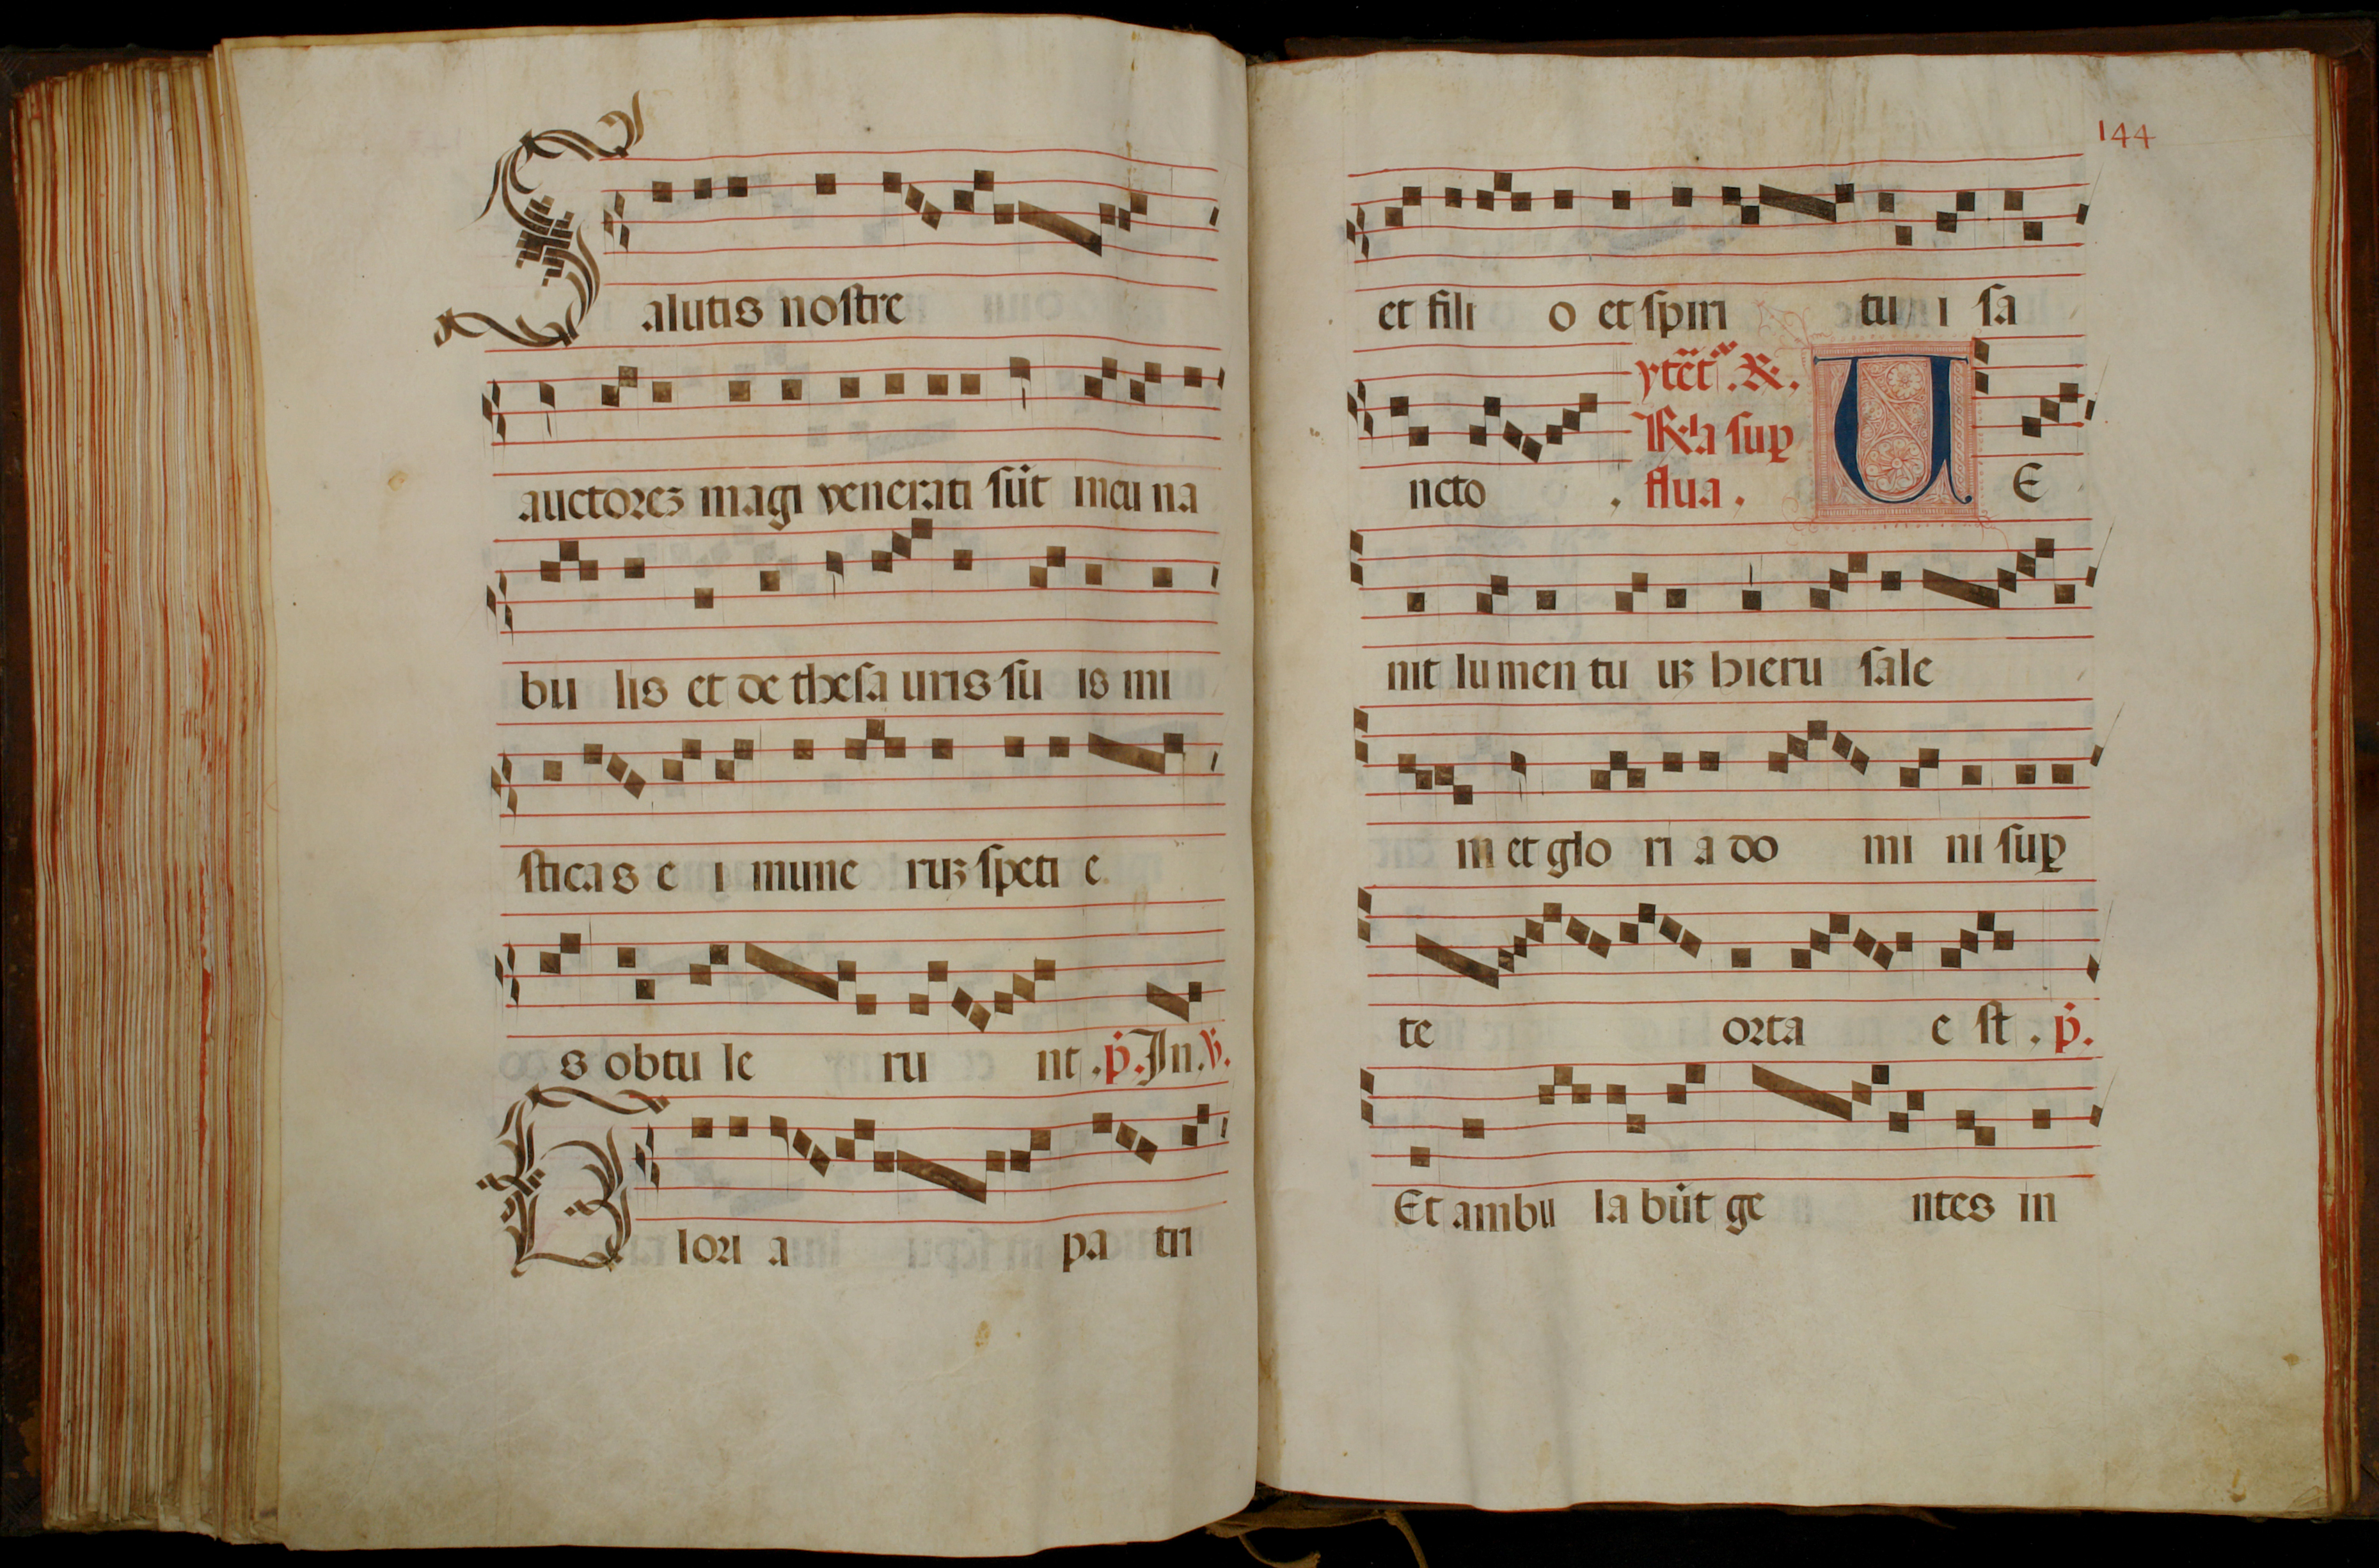 Salutis nostre
auctores magi venerati sūt incu na
bu lis et de thesa uris su is mi
sticas e i mune ruꝫ speti e
s obtu le ru nt . p̄. In .℣.
Glori a pa tri
144
et fili o et spiri tu i sa
ncto .
ytēt . ℟.
la suꝑ
flua .
VE
nit lumen tu uꝫ hieru sale
m et glo ri a do mi ni suꝑ
te orta e st . p̄.
Et ambu la būt ge ntes in